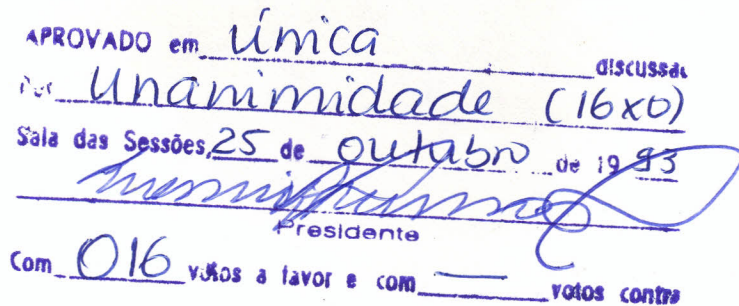 APROVADO em única discussão
Por unanimidade (16x0)
Sala das Sessões, 25 de outubro de 1993
Presidente
Com 016 votos a favor e com — votos contra